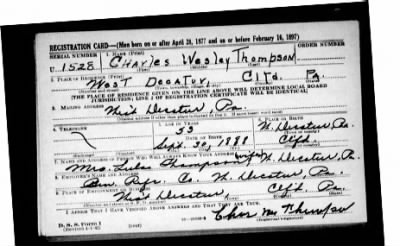 REGISTRATION CARD—(Men born on or after April 28, 1877 and on or before February 16, 1897)
SERIAL NUMBER 1. NAME (Print) ORDER NUMBER
U 1528 CHARLES Wesley Thompson
(First) (Middle) (Last)
2. PLACE OF RESIDENCE (Print)
West Decatur, Clfd. Pa.
[THE PLACE OF RESIDENCE GIVEN ON THE LINE ABOVE WILL DETERMINE LOCAL BOARD
JURISDICTION; LINE 2 OF REGISTRATION CERTIFICATE WILL BE IDENTICAL]
3. MAILING ADDRESS
West Decatur, Pa.
4. TELEPHONE 5. AGE IN YEARS 6. PLACE OF BIRTH
53 W. Decatur, Pa.
DATE OF BIRTH
Sept. 30, 1888 Clfd.
7. NAME AND ADDRESS OF PERSON WHO WILL ALWAYS KNOW YOUR ADDRESS
Mrs. Thompson (wife) W. Decatur, Pa.
8. EMPLOYER'S NAME AND ADDRESS
Co. W. Decatur, Pa.
9. PLACE OF EMPLOYMENT OR BUSINESS
West Decatur, Clfd. Pa.
I AFFIRM THAT I HAVE VERIFIED ABOVE ANSWERS AND THAT THEY ARE TRUE.
D. S. S. Form 1
Chas W Thompson